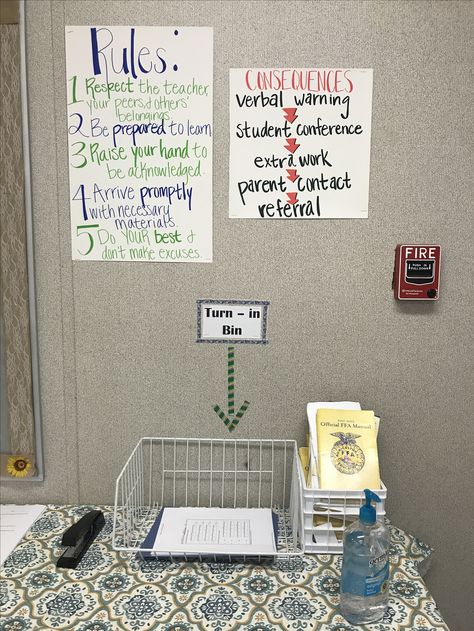 Rules:
1 Respect the teacher,
your peers, & others'
belongings.
2 Be prepared to learn
3 Raise your hand to
be acknowledged.
4 Arrive promptly
with necessary
materials.
5 Do YOUR best &
don't make excuses.
CONSEQUENCES
verbal warning
student conference
extra work
parent contact
referral
FIRE
Turn - in
Bin
Official FFA Manual
FFA